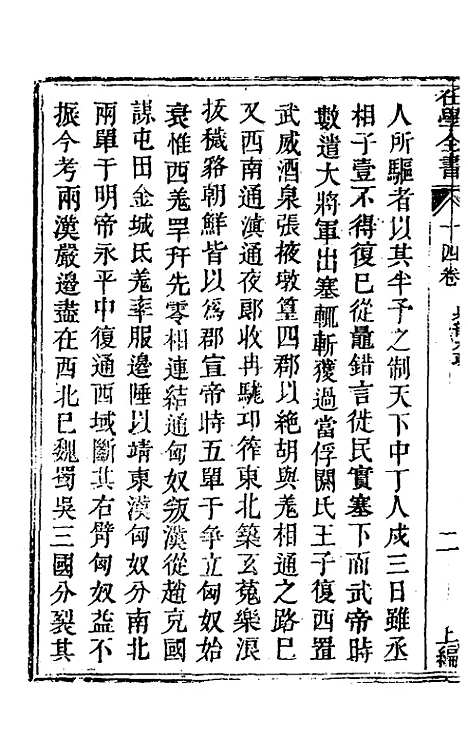 人所驅者以其半予之制天下中丁人戍三日雖丞
相子壹不得復巳從鼂錯言徙民實塞下而武帝時
數遣大將軍出塞輒斬獲過當俘閼氏王子復西置
武威酒泉張掖墩篁四郡以絶胡與羗相通之路巳
又西南通滇通夜郎收冉駹邛筰東北築玄菟樂浪
抜穢貉朝鮮皆以爲郡宣帝時五單于争立匈奴始
衰惟西羗罕幵先零相連結通匈奴叛漢從趙充國
謀屯田金城氐羗率服邊陲以靖東漢匈奴分南北
兩單于明帝永平中復通西域斷其右臂匈奴益不
振今考兩漢嚴邊盡在西北巳魏蜀吳三國分裂其
在學全書 十四卷 二 上編